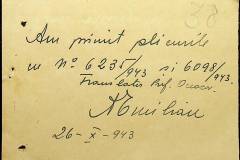 38
Am primit plicurile
cu Nº 6235/943 si 6098/943.
Translatis Prf.
Emilian
26-X-943